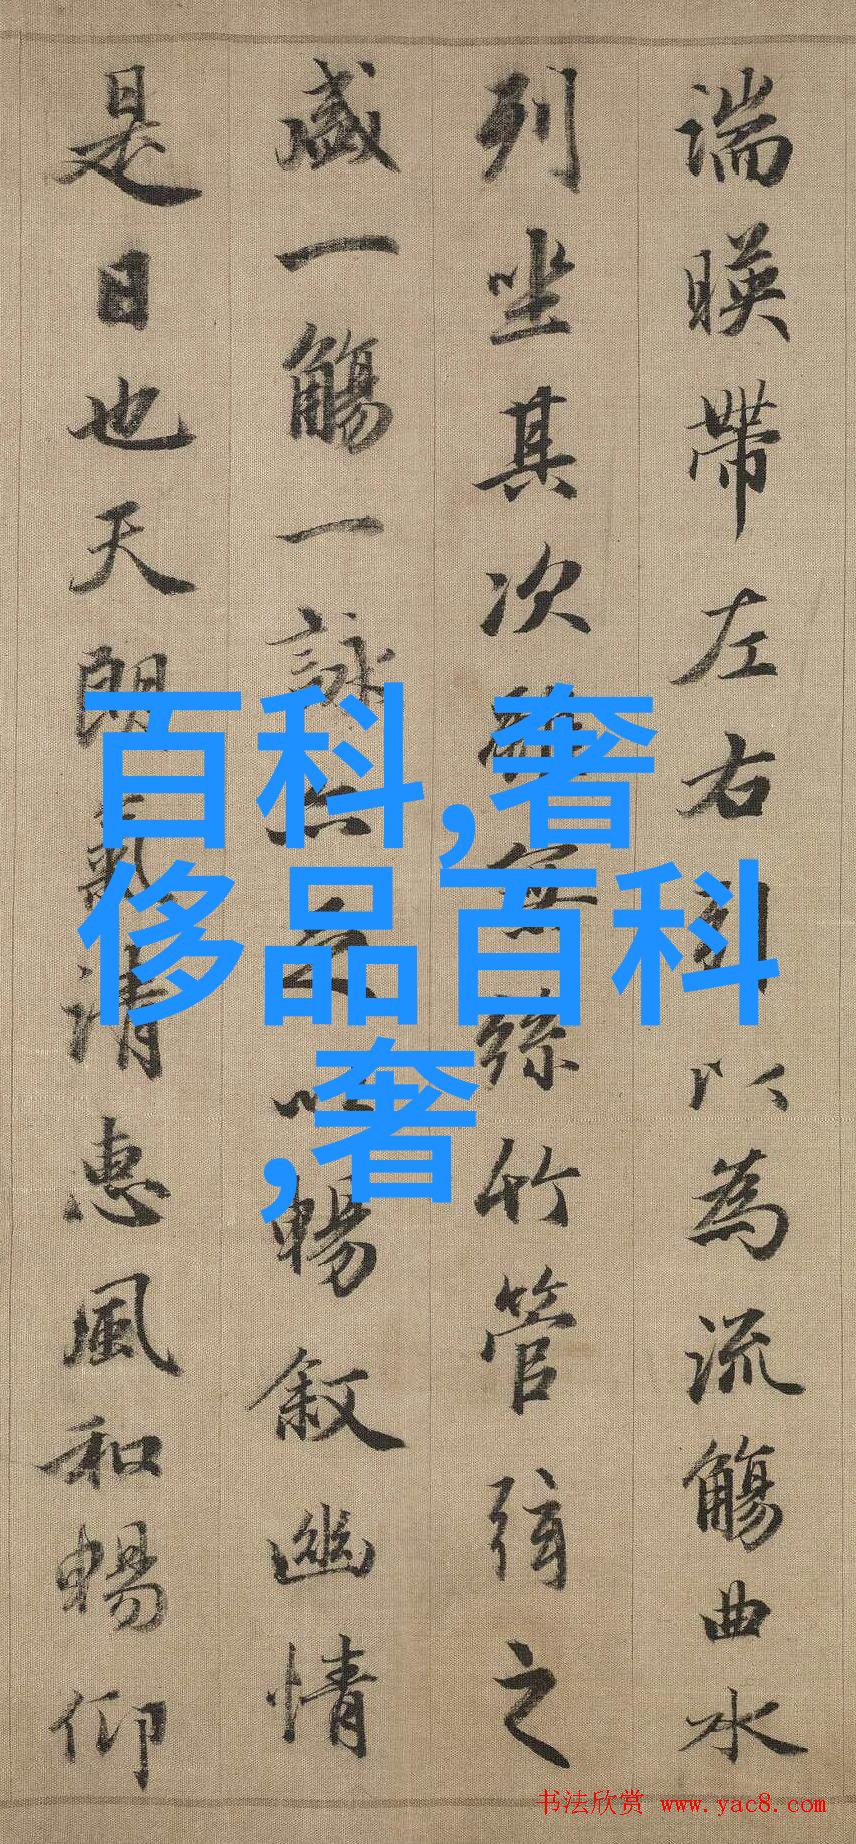 湍暎帶左右引以為流觴曲水
列坐其次雖無絲竹管弦之
盛一觴一詠亦足以暢敘幽情
是日也天朗氣清惠風和暢仰
百科,奢
侈品百科
,奢
书法欣赏 www.yac8.com